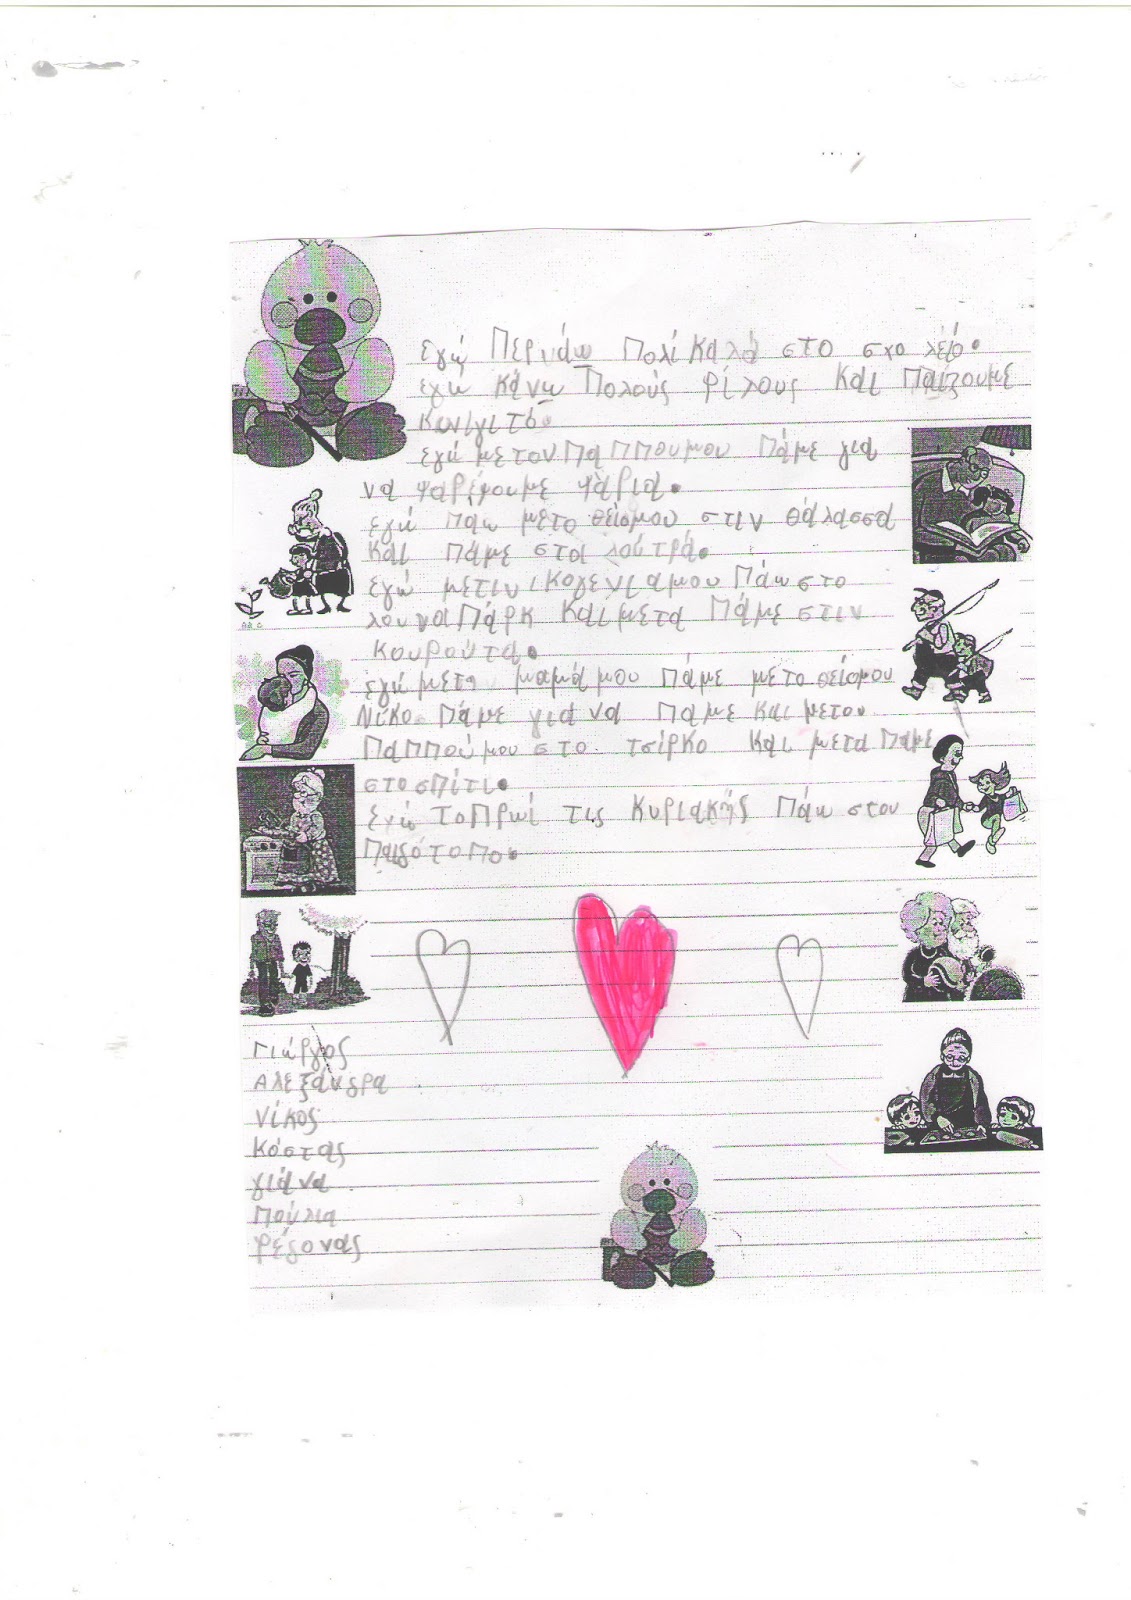 εγώ Περνάω Πολί καλά στο σχολείο.
εγω κάνω Πολούς φίλους και Παίζουμε
κυνιγιτό.
εγώ με τον ΠαΠΠουμου Πάμε για
να ψαρέψουμε ψάρια.
εγώ πάω μετο θείομου στιν θάλασσα
και πάμε στα λουτρά.
εγώ μετιν ικογενιαμου Πάω στο
λουναΠάρκ και μετα Πάμε στιν
κουρούτα.
εγώ μετη μαμά μου Πάμε με το θείομου
Νίκο Πάμε για να Παμε και μετο
Παππού μου στο τσίρκο και μετα Παμε
στο σΠίτι.
Εγώ το Πρωί τις Κυριακής Πάω στου
Παιδότοπο.
Γιώργος
Αλεξάνδρα
Νίκος
Κόστας
γιάνα
Πούλια